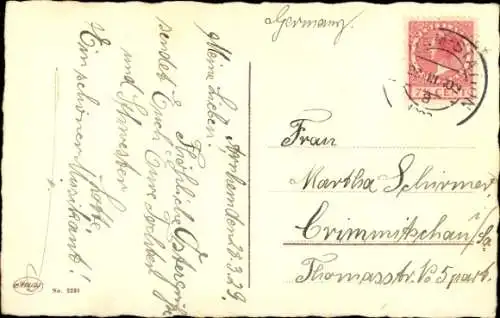 (Germany.)
Arnhem den 28.3.29.
Meine Lieben!
Fröhliche Ostergrüße
sendet Euch Eure Tochter
und Schwester
Lotte.
Ein schöner Musikant!
Frau
Martha Schirmer
Crimmitschau i/Sa.
Thomasstr. No 5 part.
No. 2281